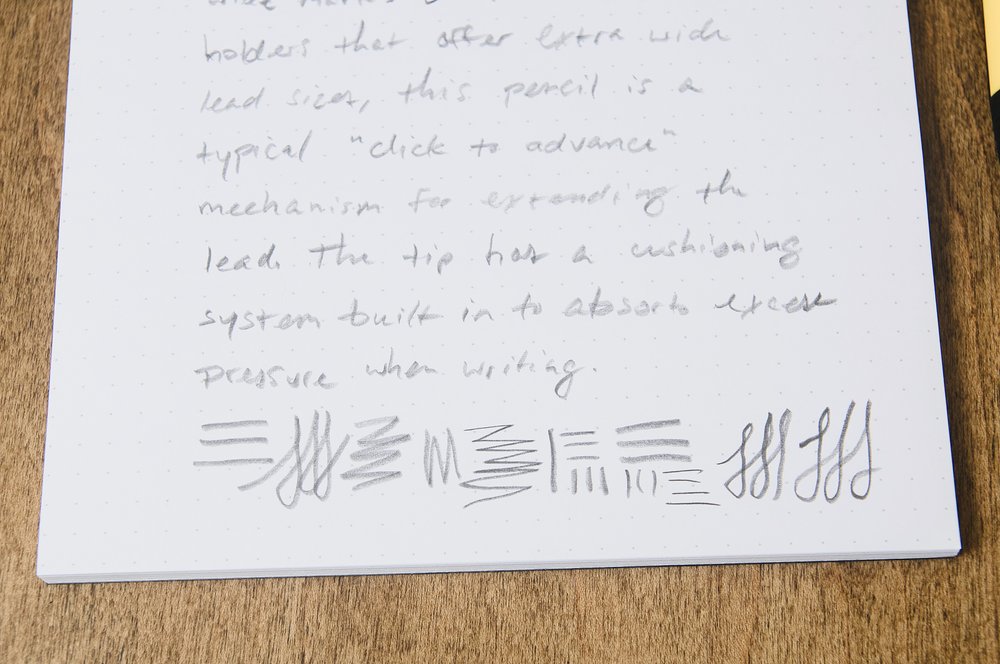 holders that offer extra wide
lead sizes, this pencil is a
typical "click to advance"
mechanism for extending the
lead. The tip has a cushioning
system built in to absorb excess
pressure when writing.